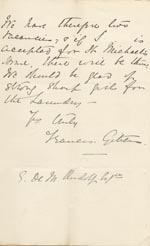 We have therefore two
vacancies, & if J is
accepted for St Michaels
Home, there will be three
We should be glad of
strong stout girls for
the Laundry -
Yrs truly
Frances
E. De M. Rudolf Esqre